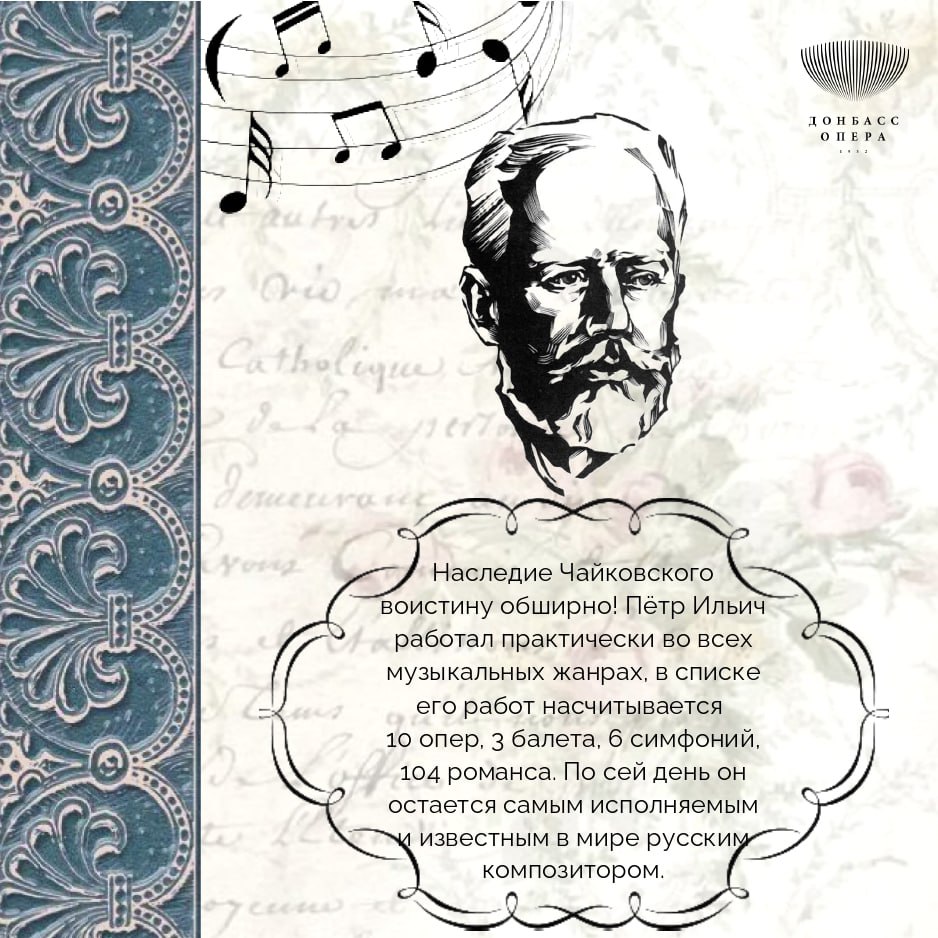 ДОНБАСС
ОПЕРА
1932
autres
Catholique
de la
demeurant
Наследие Чайковского
воистину обширно! Пётр Ильич
работал практически во всех
музыкальных жанрах, в списке
его работ насчитывается
10 опер, 3 балета, 6 симфоний,
104 романса. По сей день он
остается самым исполняемым
и известным в мире русским
композитором.